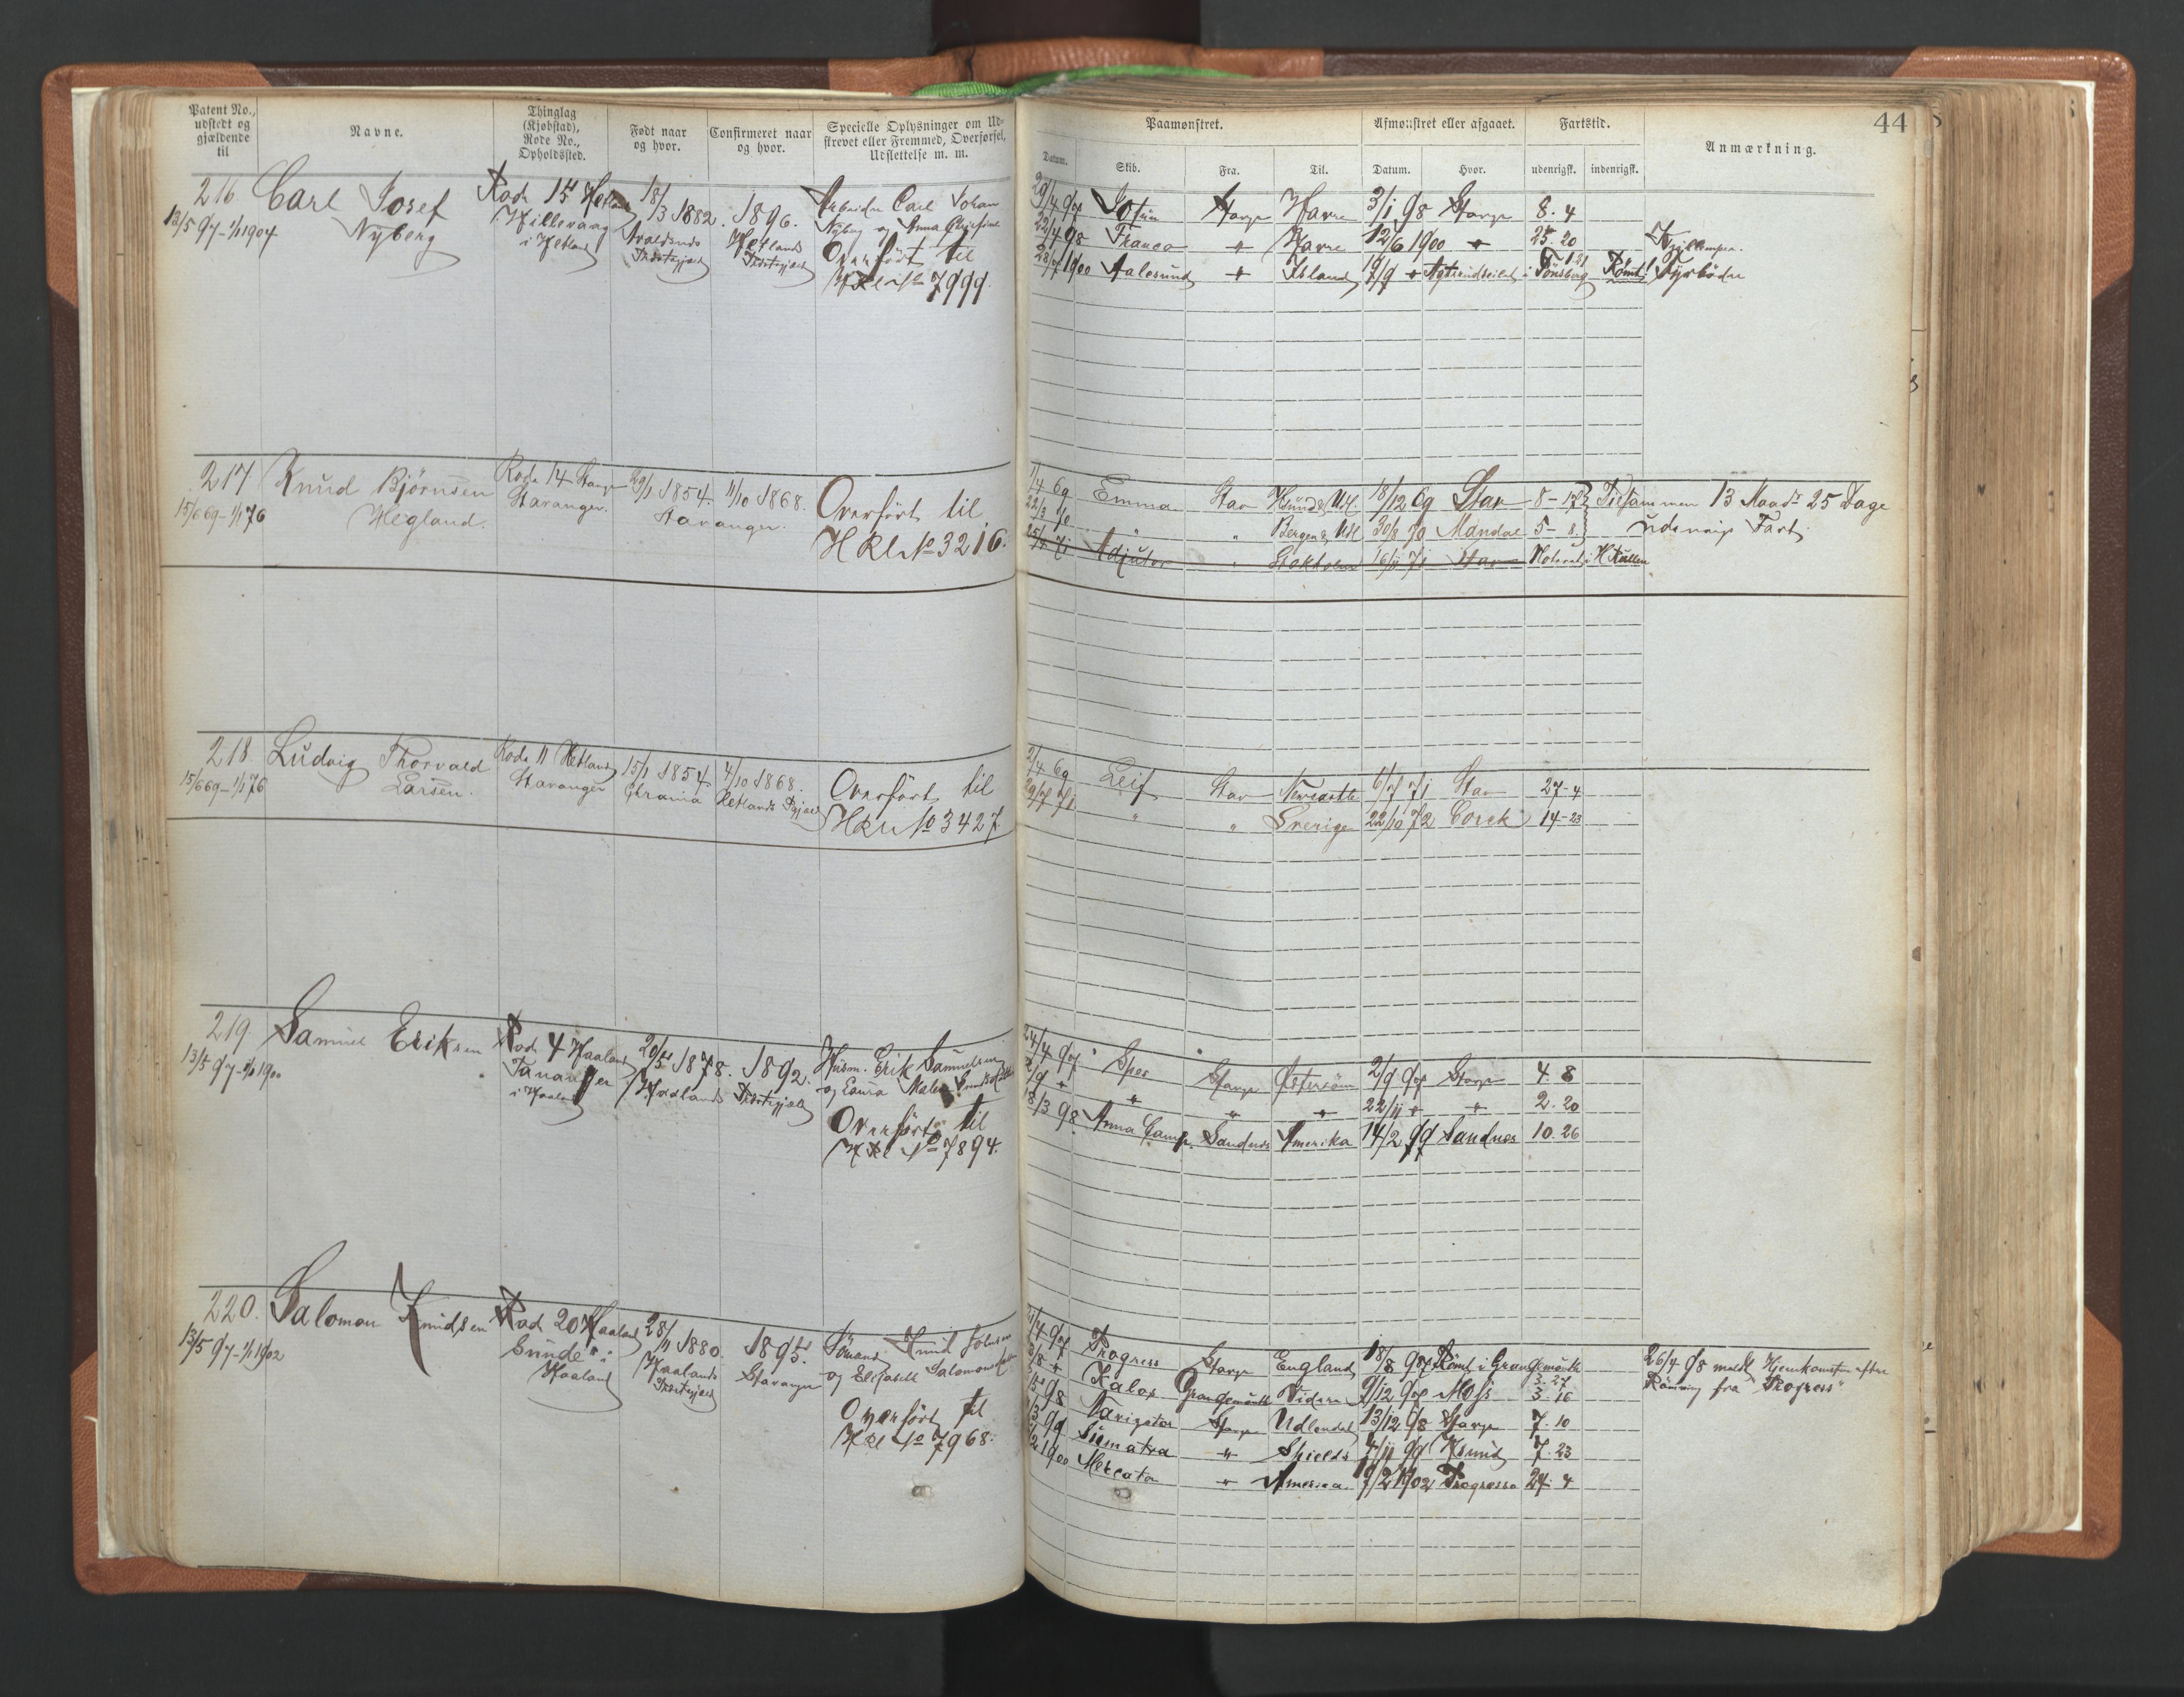 Patent No., udstedt og gjældende til
Navne.
Thinglag (Kjøbstad), Rode No., Opholdssted.
Født naar og hvor.
Confirmeret naar og hvor.
Specielle Oplysninger om Udstrevet eller Fremmed, Overførsel, Udslettelse m. m.
Paamønstret.
Afmønstret eller afgaaet.
Fartstid.
Anmærkning.
44
Datum.
Skib.
Fra.
Til.
Datum.
Hvor.
udenrigsk.
indenrigsk.
216
13/5 97-1/1 1904
Carl Josef
Nyberg
Rode 15 Hetland
Hillevaag
i Hetland
18/3 1882.
Avaldsnes
Præstegjæld
1896.
Hetlands
Præstegjæld
Arbeider Carl Johan
Nyberg og Anna Christine
Overført til
HRl No 7999.
29/4 97 Jotun Stavgr Havre 3/1 98 Stavgr 8. 4
22/4 98 Franco " Havre 12/6 1900 " 25. 20
1900 Aalesund " Island Tønsberg Rømt Fyrbøder
217
15/6 69-1/1 76
Knud Björnsen
Hegland.
Rode 14 Stavgr
Stavanger.
29/1 1854.
Stavanger.
11/10 1868.
Overført til
HRl No 3216.
1/4 69 Emma Stav 18/12 69 Stav 8-17 Tilsammen 13 Maadr 25 Dage
22/3 70 " " Bergen & Udl 30/8 70 Mandal 5-8 udenrigs Fart
25/4 71 Adjutor " Stokholm 16/11 71 Stav
218.
15/6 69-1/1 76
Ludvig Thorvald
Larsen.
Rode 11 Hetland
Stavanger
15/1 1854
Chrania
4/10 1868.
Hetlands Pgjæld
Overført til
HRl No 3427
2/4 69 Leif Stav Newcastle 6/7 71 Stav 27-4
29/7 71 " " Sverige 22/10 72 Cork 14-23
219
13/5 97-1/1 1900
Samuel Eriksen
Rode 4 Haaland
Tananger
i Haaland
20/5 1878.
Haalands
1892.
Præstegjæld
Husm. Erik Samuelsen
og Laura Malene
Overført til
HRl No 7894.
24/4 97 Spes Stavgr Østersøen 2/9 97 Stavgr 4. 8
2/9 " " " " 22/11 " " 2. 20
8/3 98 Anna Camp. Sandnes Amerika 14/2 99 Sandnes 10. 26
220.
13/5 97-1/1 1902
Salomon Knudsen
Rode 20 Haaland
Sunde i
Haaland
28/11 1880.
Haalands
Præstegjæld
1895.
Stavanger
Sömand Knud
og Elisabeth Salomonsdatter
Overført til
HRl No 7968.
4 97 Progress Stavgr England 18/8 97 Rømt i Grangemouth 3. 27
Kalos Grangemouth 9/12 97 Moss 3. 16
98 Navigator Stavgr Udlandet 13/12 98 Stavgr 7. 10
99 Sumatra " Shields 4/11 99 Ksund 7. 23
1900 Mercator " America 19/2 1902 Progresso 24. 4
26/4 98 meldt Hjemkomsten efter
Rømning fra "Progress"